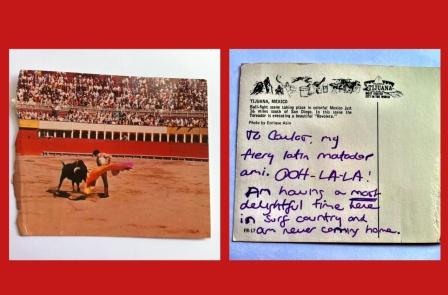 TIJUANA
TIJUANA, MEXICO
Bull-fight scene taking place in colorful Mexico just
16 miles south of San Diego. In this scene the
Toreador is executing a beautiful "Revolera."
Photo by Enrique Asin
To Carlos, my
fiery latin matador
ami. OOH-LA-LA!
Am having a most
delightful time here
in surf country and
am never coming home.